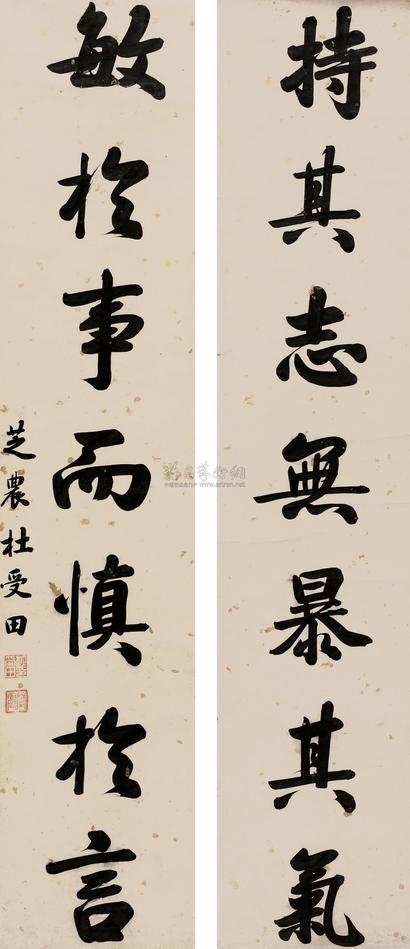 持其志無暴其氣
敏於事而慎於言
芝農杜受田
www.artron.net